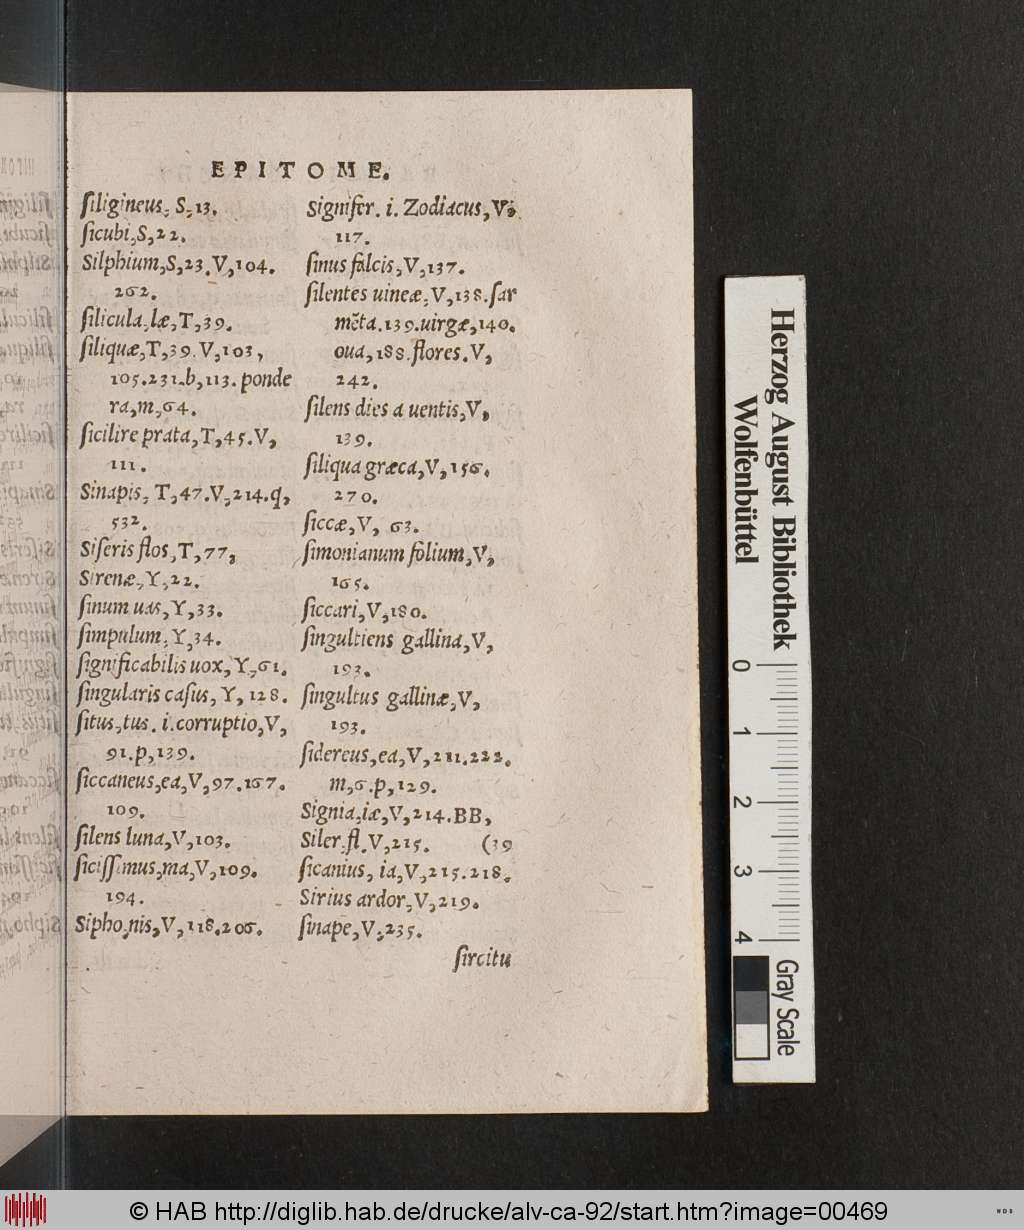 EPITOME.
ſiligineus, S,13.
ſicubi,S,22.
Silphium,S,23.V,104.
262.
ſilicula,læ,T,39.
ſiliquæ,T,39.V,103,
105.231.b,113.ponde
ra,m,64.
ſicilire prata,T,45.V,
111.
Sinapis, T,47.V,214.q,
532.
Siſeris flos,T,77,
Sirenæ,Y,22.
ſinum uas,Y,33.
ſimpulum,Y,34.
ſignificabilis uox,Y,61.
ſingularis caſus, Y, 128.
ſitus,tus.i.corruptio,V,
91.p,139.
ſiccaneus,ea,V,97.167.
109.
ſilens luna,V,103.
ſiciſſimus,ma,V,109.
194.
Sipho,nis,V,118.206.
Signifer.i.Zodiacus,V,
117.
ſinus falcis,V,137.
ſilentes uineæ,V,138.ſar
mẽta.139.uirgæ,140.
oua,188.flores.V,
242.
ſilens dies a uentis,V,
139.
ſiliqua græca,V,156.
270.
ſiccæ,V, 63.
ſimonianum folium,V,
165.
ſiccari,V,180.
ſingultiens gallina,V,
193.
ſingultus gallinæ,V,
193.
ſidereus,ea,V,211.222.
m,6.p,129.
Signia,iæ,V,214.BB,
Siler.fl.V,215. (39
ſicanius, ia,V,215.218.
Sirius ardor,V,219.
ſinape,V,235.
ſircitu
Herzog August Bibliothek
Wolfenbüttel
0 1 2 3 4
Gray Scale
© HAB http://diglib.hab.de/drucke/alv-ca-92/start.htm?image=00469